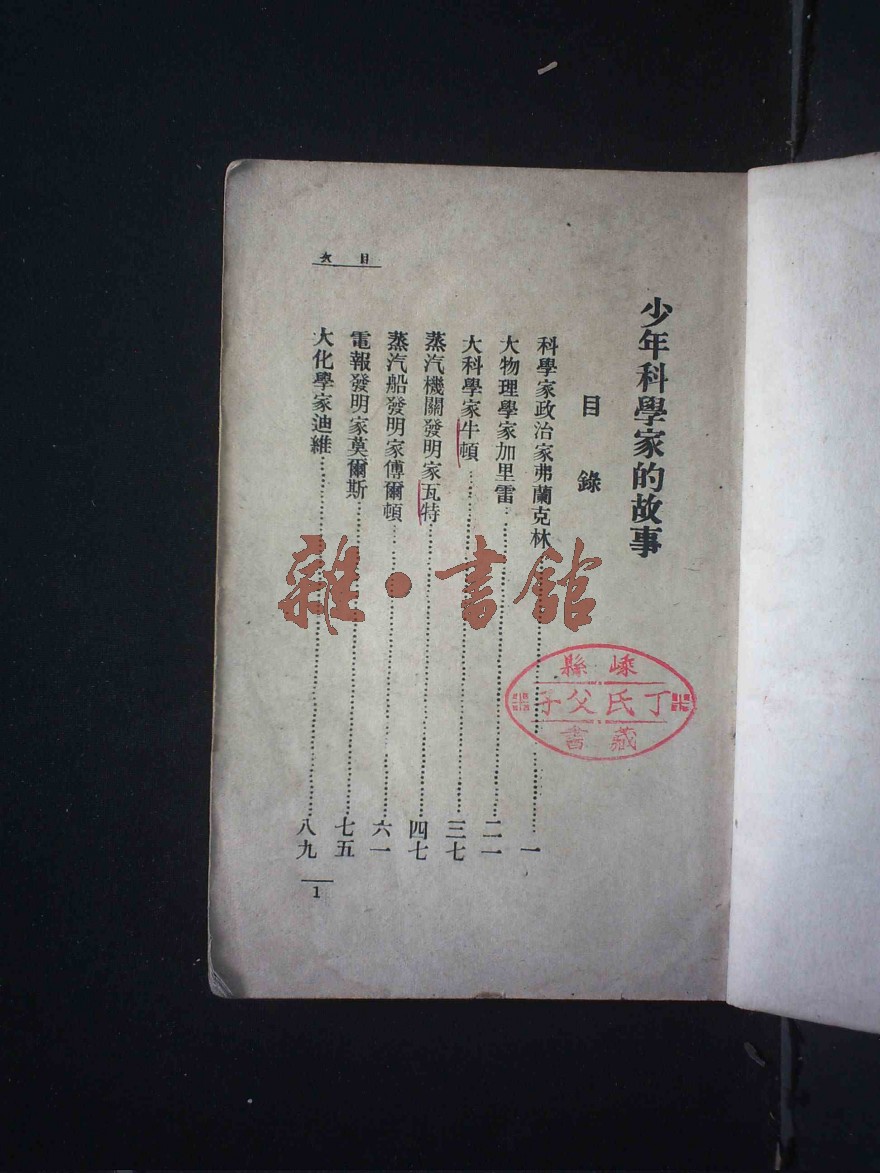 少年科學家的故事
目錄
科學家政治家弗蘭克林……一
大物理學家加里雷……二一
大科學家牛頓……三七
蒸汽機關發明家瓦特……四七
蒸汽船發明家傅爾頓……六一
電報發明家莫爾斯……七五
大化學家迪維……八九
目次
1
雜·書館
嵊縣
丁氏父子
藏書